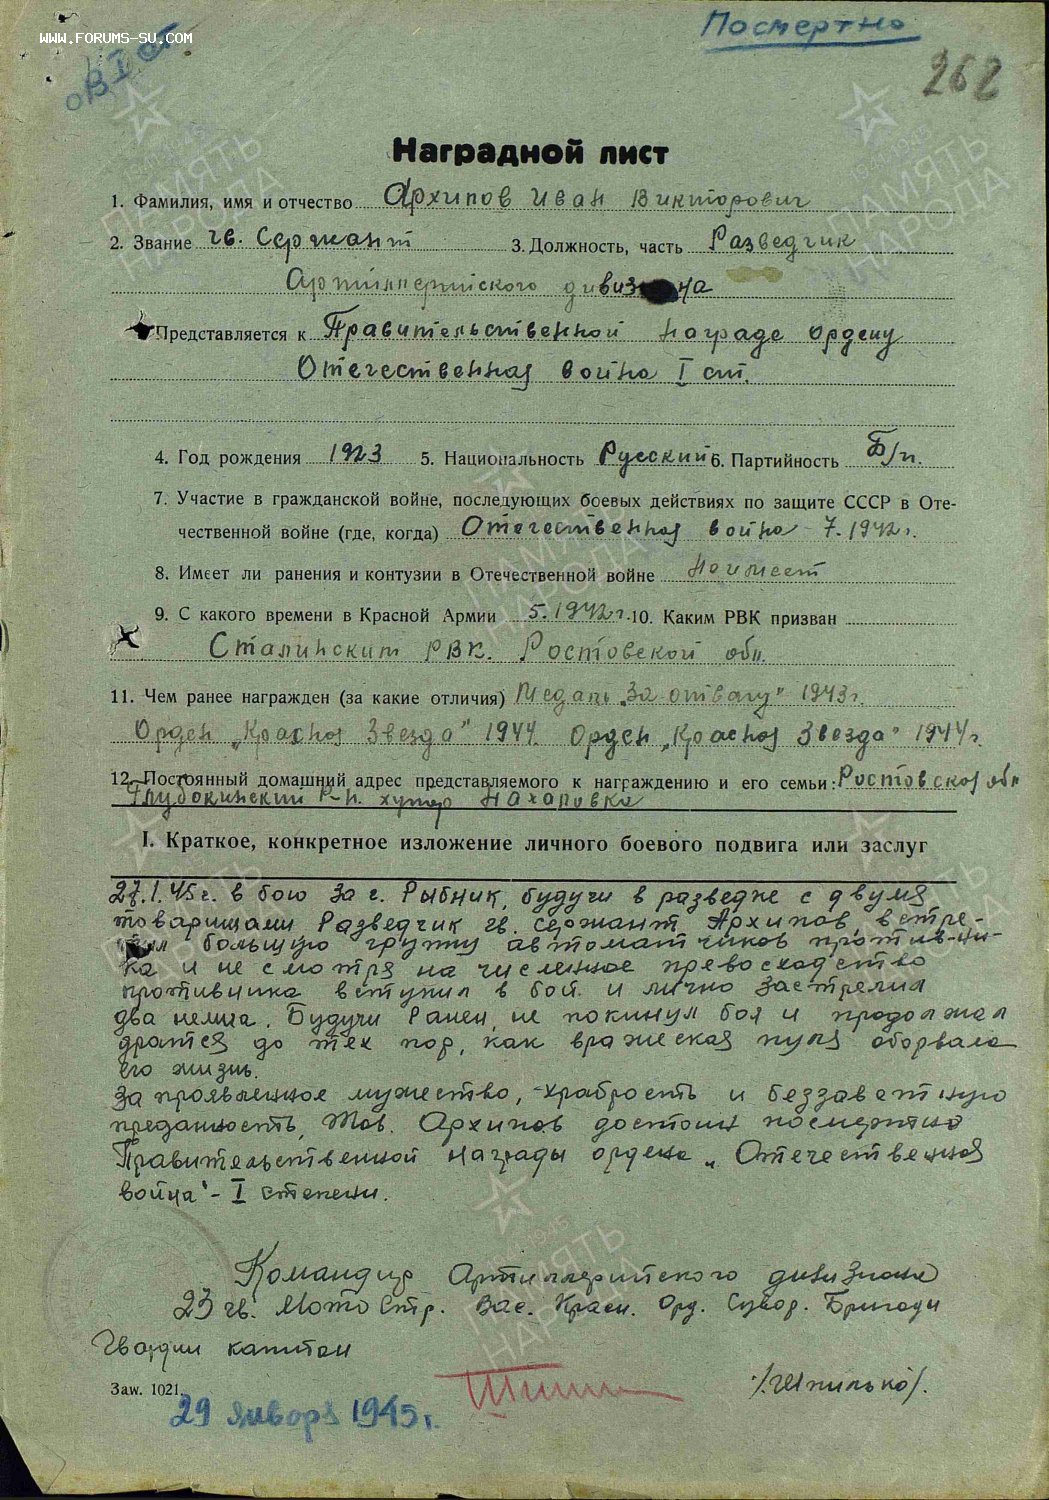 www.FORUMS-SU.com
Посмертно
ОВ I ст
262
Наградной лист
1. Фамилия, имя и отчество Архипов Иван Викторович
2. Звание гв. Сержант 3. Должность, часть Разведчик
Артиллерийского дивизиона
Представляется к Правительственной награде ордену
Отечественная война I ст.
4. Год рождения 1923 5. Национальность Русский 6. Партийность Б/п.
7. Участие в гражданской войне, последующих боевых действиях по защите СССР в Оте-
чественной войне (где, когда) Отечественная война 7. 1942 г.
8. Имеет ли ранения и контузии в Отечественной войне не имеет
9. С какого времени в Красной Армии 5. 1942 г. 10. Каким РВК призван
Сталинским РВК. Ростовской обл.
11. Чем ранее награжден (за какие отличия) Медаль „За отвагу" 1943 г.
Орден „Красная Звезда" 1944. Орден „Красная Звезда" 1944 г.
12. Постоянный домашний адрес представляемого к награждению и его семьи: Ростовская обл
Глубокинский Р-н. хутор
I. Краткое, конкретное изложение личного боевого подвига или заслуг
27.1.45 г. в бою за г. Рыбник, будучи в разведке с двумя
товарищами Разведчик гв. сержант Архипов встре-
тил большую группу автоматчиков против-ни-
ка и не смотря на численное превосходство
противника вступил в бой. и лично застрелил
два немца. Будучи Ранен, не покинул боя и продолжал
дратся до тех пор, как вражеская пуля оборвала
его жизнь.
За проявленное мужество, -храбрость и беззаветную
преданность, Тов. Архипов достоин посмертно
Правительственной награды ордена „Отечественная
война" - I степени.
Командир Артиллерийского дивизиона
23 гв. Мото Стр. Вас. Красн. Орд. Сувор. Бригады
Гвардии капитан
/Шпилько/.
Заw. 1021.
29 января 1945 г.
ПАМЯТЬ
НАРОДА